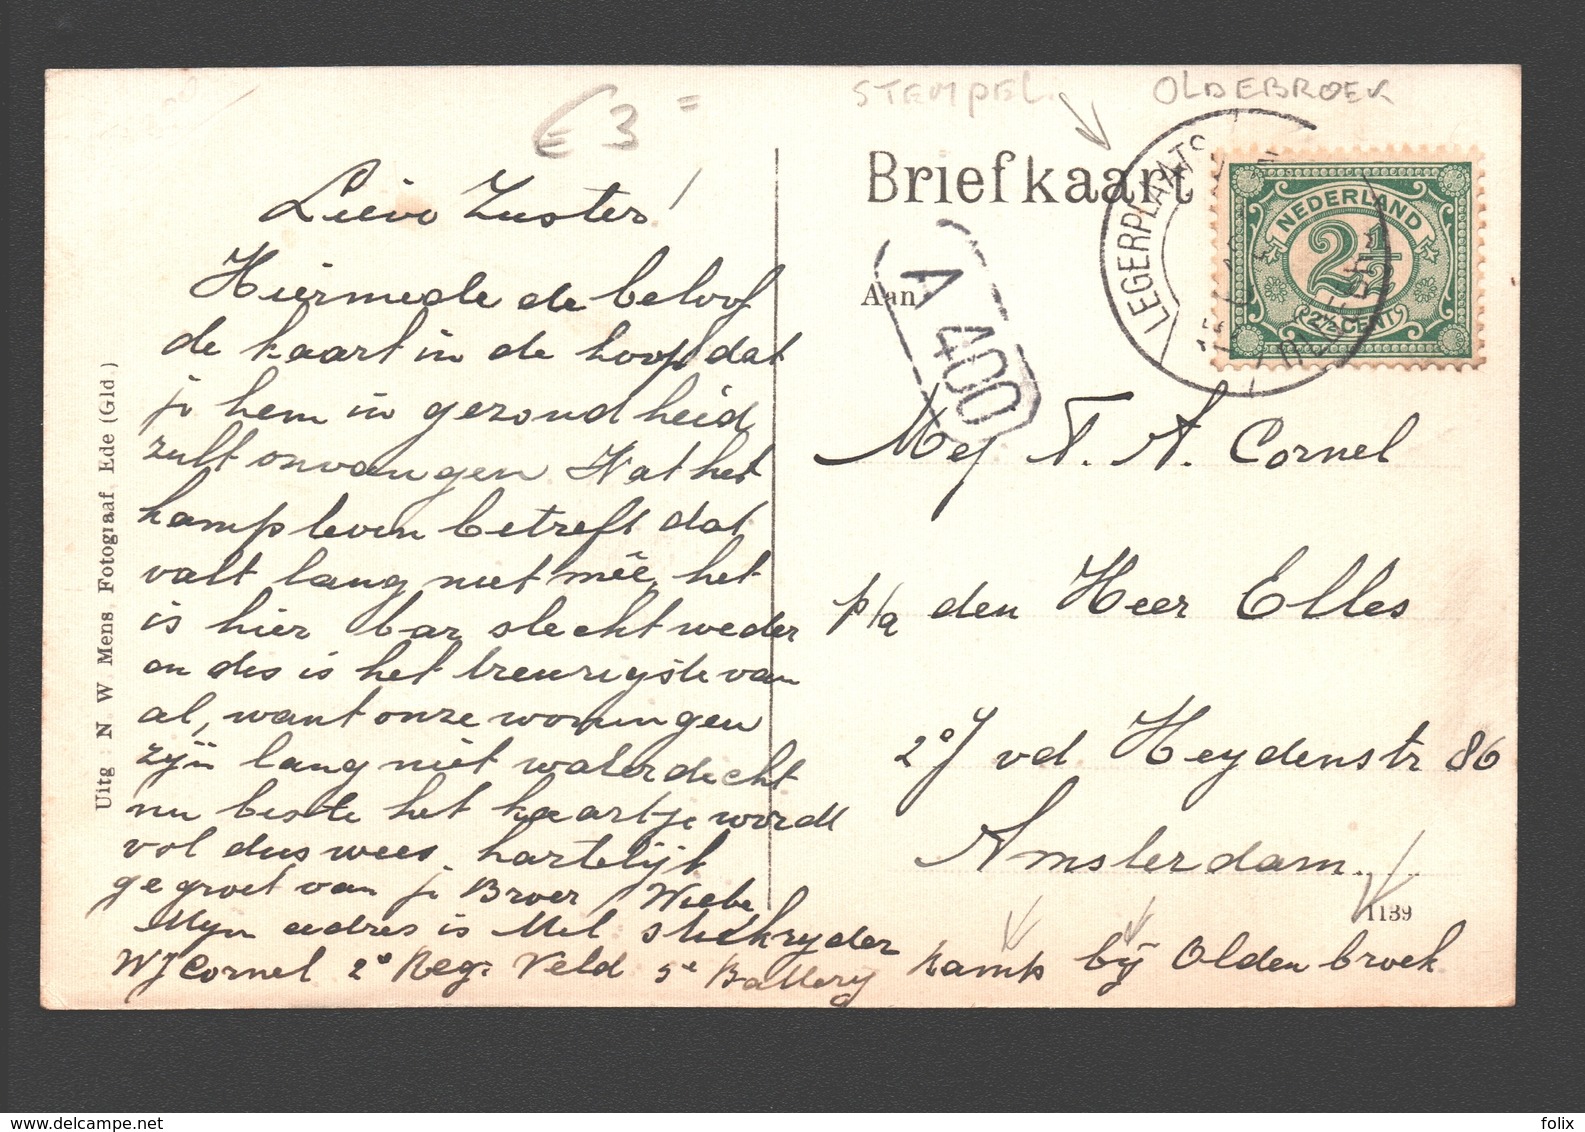 € 3 =
STEMPEL. OLDEBROEK
Briefkaart
LEGERPLAATS
NEDERLAND
2½
2½ CENT
Aan
A 400
Lieve Zuster!
Hiermede de beloof
de kaart in de hoop dat
je hem in gezondheid
zult onvangen Wat het
kampleven betreft dat
valt lang niet mêe, het
is hier bar slecht weder
en des is het treurigste van
al, want onze woningen
zijn lang niet waterdicht
nu beste het kaartje wordt
vol dus wees hartelijk
gegroet van je Broer Wiebe
Mijn adres is Mil stukryder
WJ Cornel 2e Reg: Veld 5e Battery kamp bij Oldenbroek
Mej T. A. Cornel
p/a den Heer Elles
2e J vd Heydenstr 86
Amsterdam.
1139
Uitg N. W Mens Fotograaf Ede (Gld.)
delcampe.net
folix